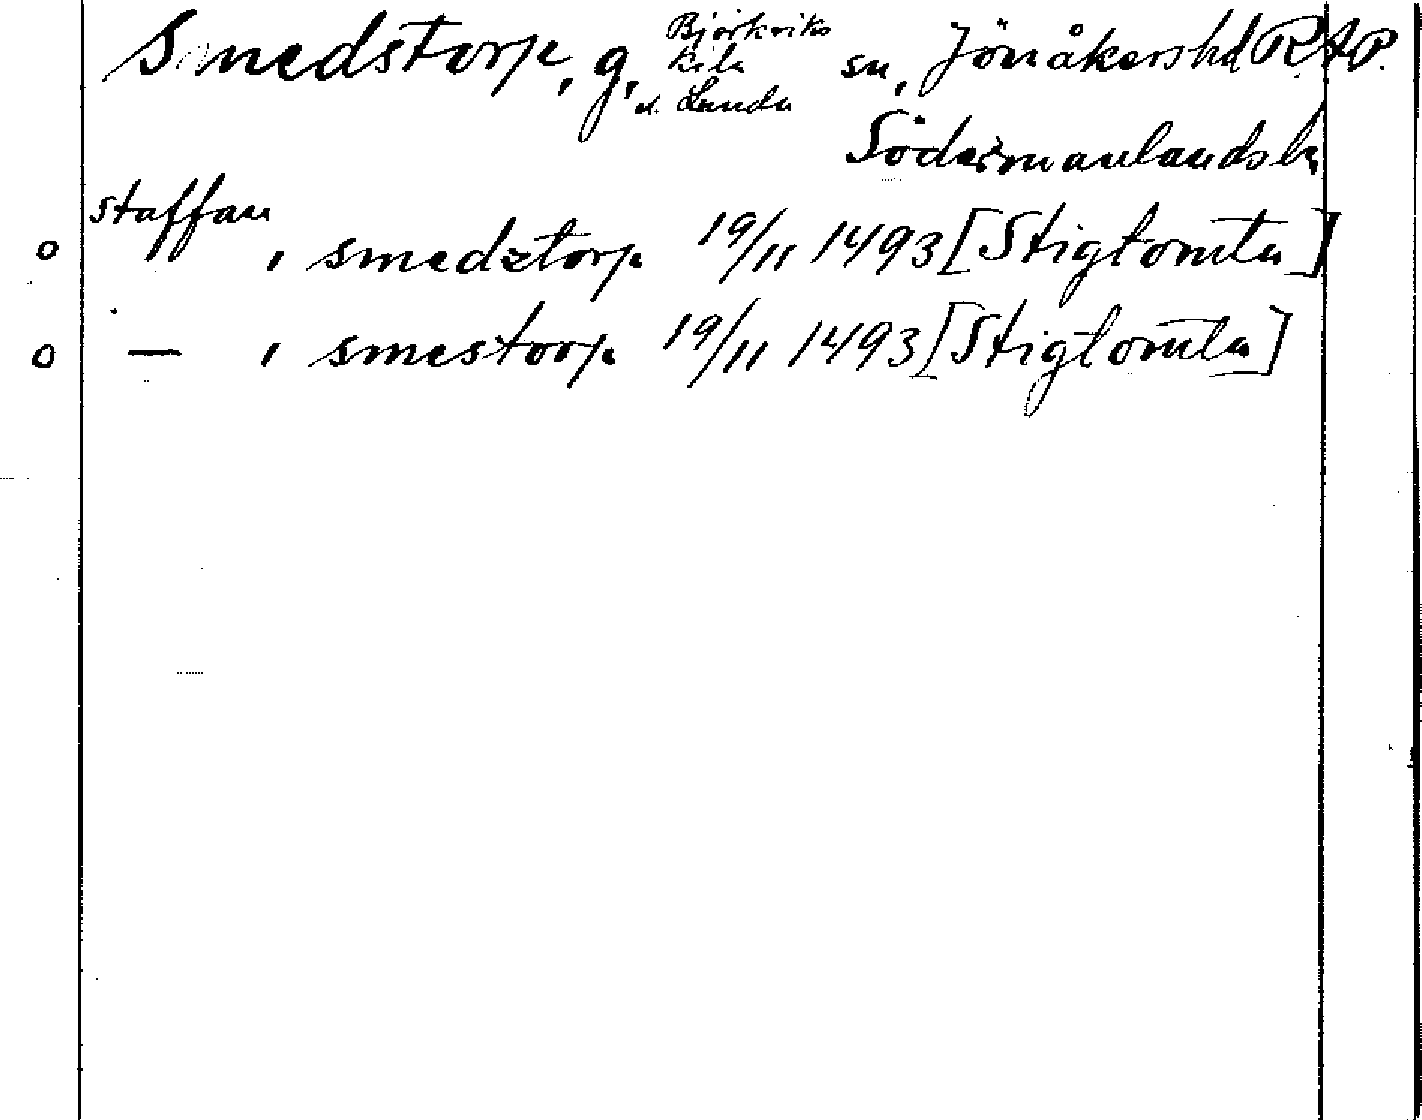 Smedstorp, g, Björkviks Kila el. Lunda sn, Jönåkers hd RAP.
Södermanlands l.
staffan i smedztorp 19/11 1493 [Stigtomta]
o
o — i smestorp 19/11 1493 [Stigtomta]